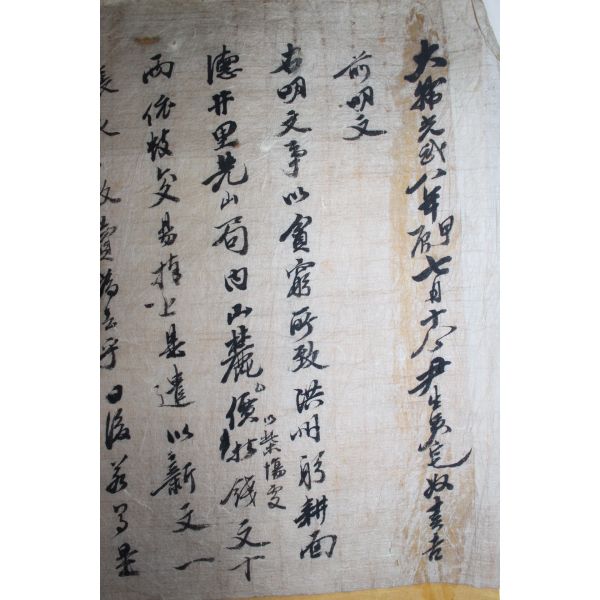 大韓光武八年甲辰七月十八日尹生員宅奴春吉
前明文
右明文事以貧窮所致洪州躬耕面
德井里先山局內山麓以柴場處價折錢文十
兩依數交易捧上是遣以新文一
賣爲去乎日後若有是